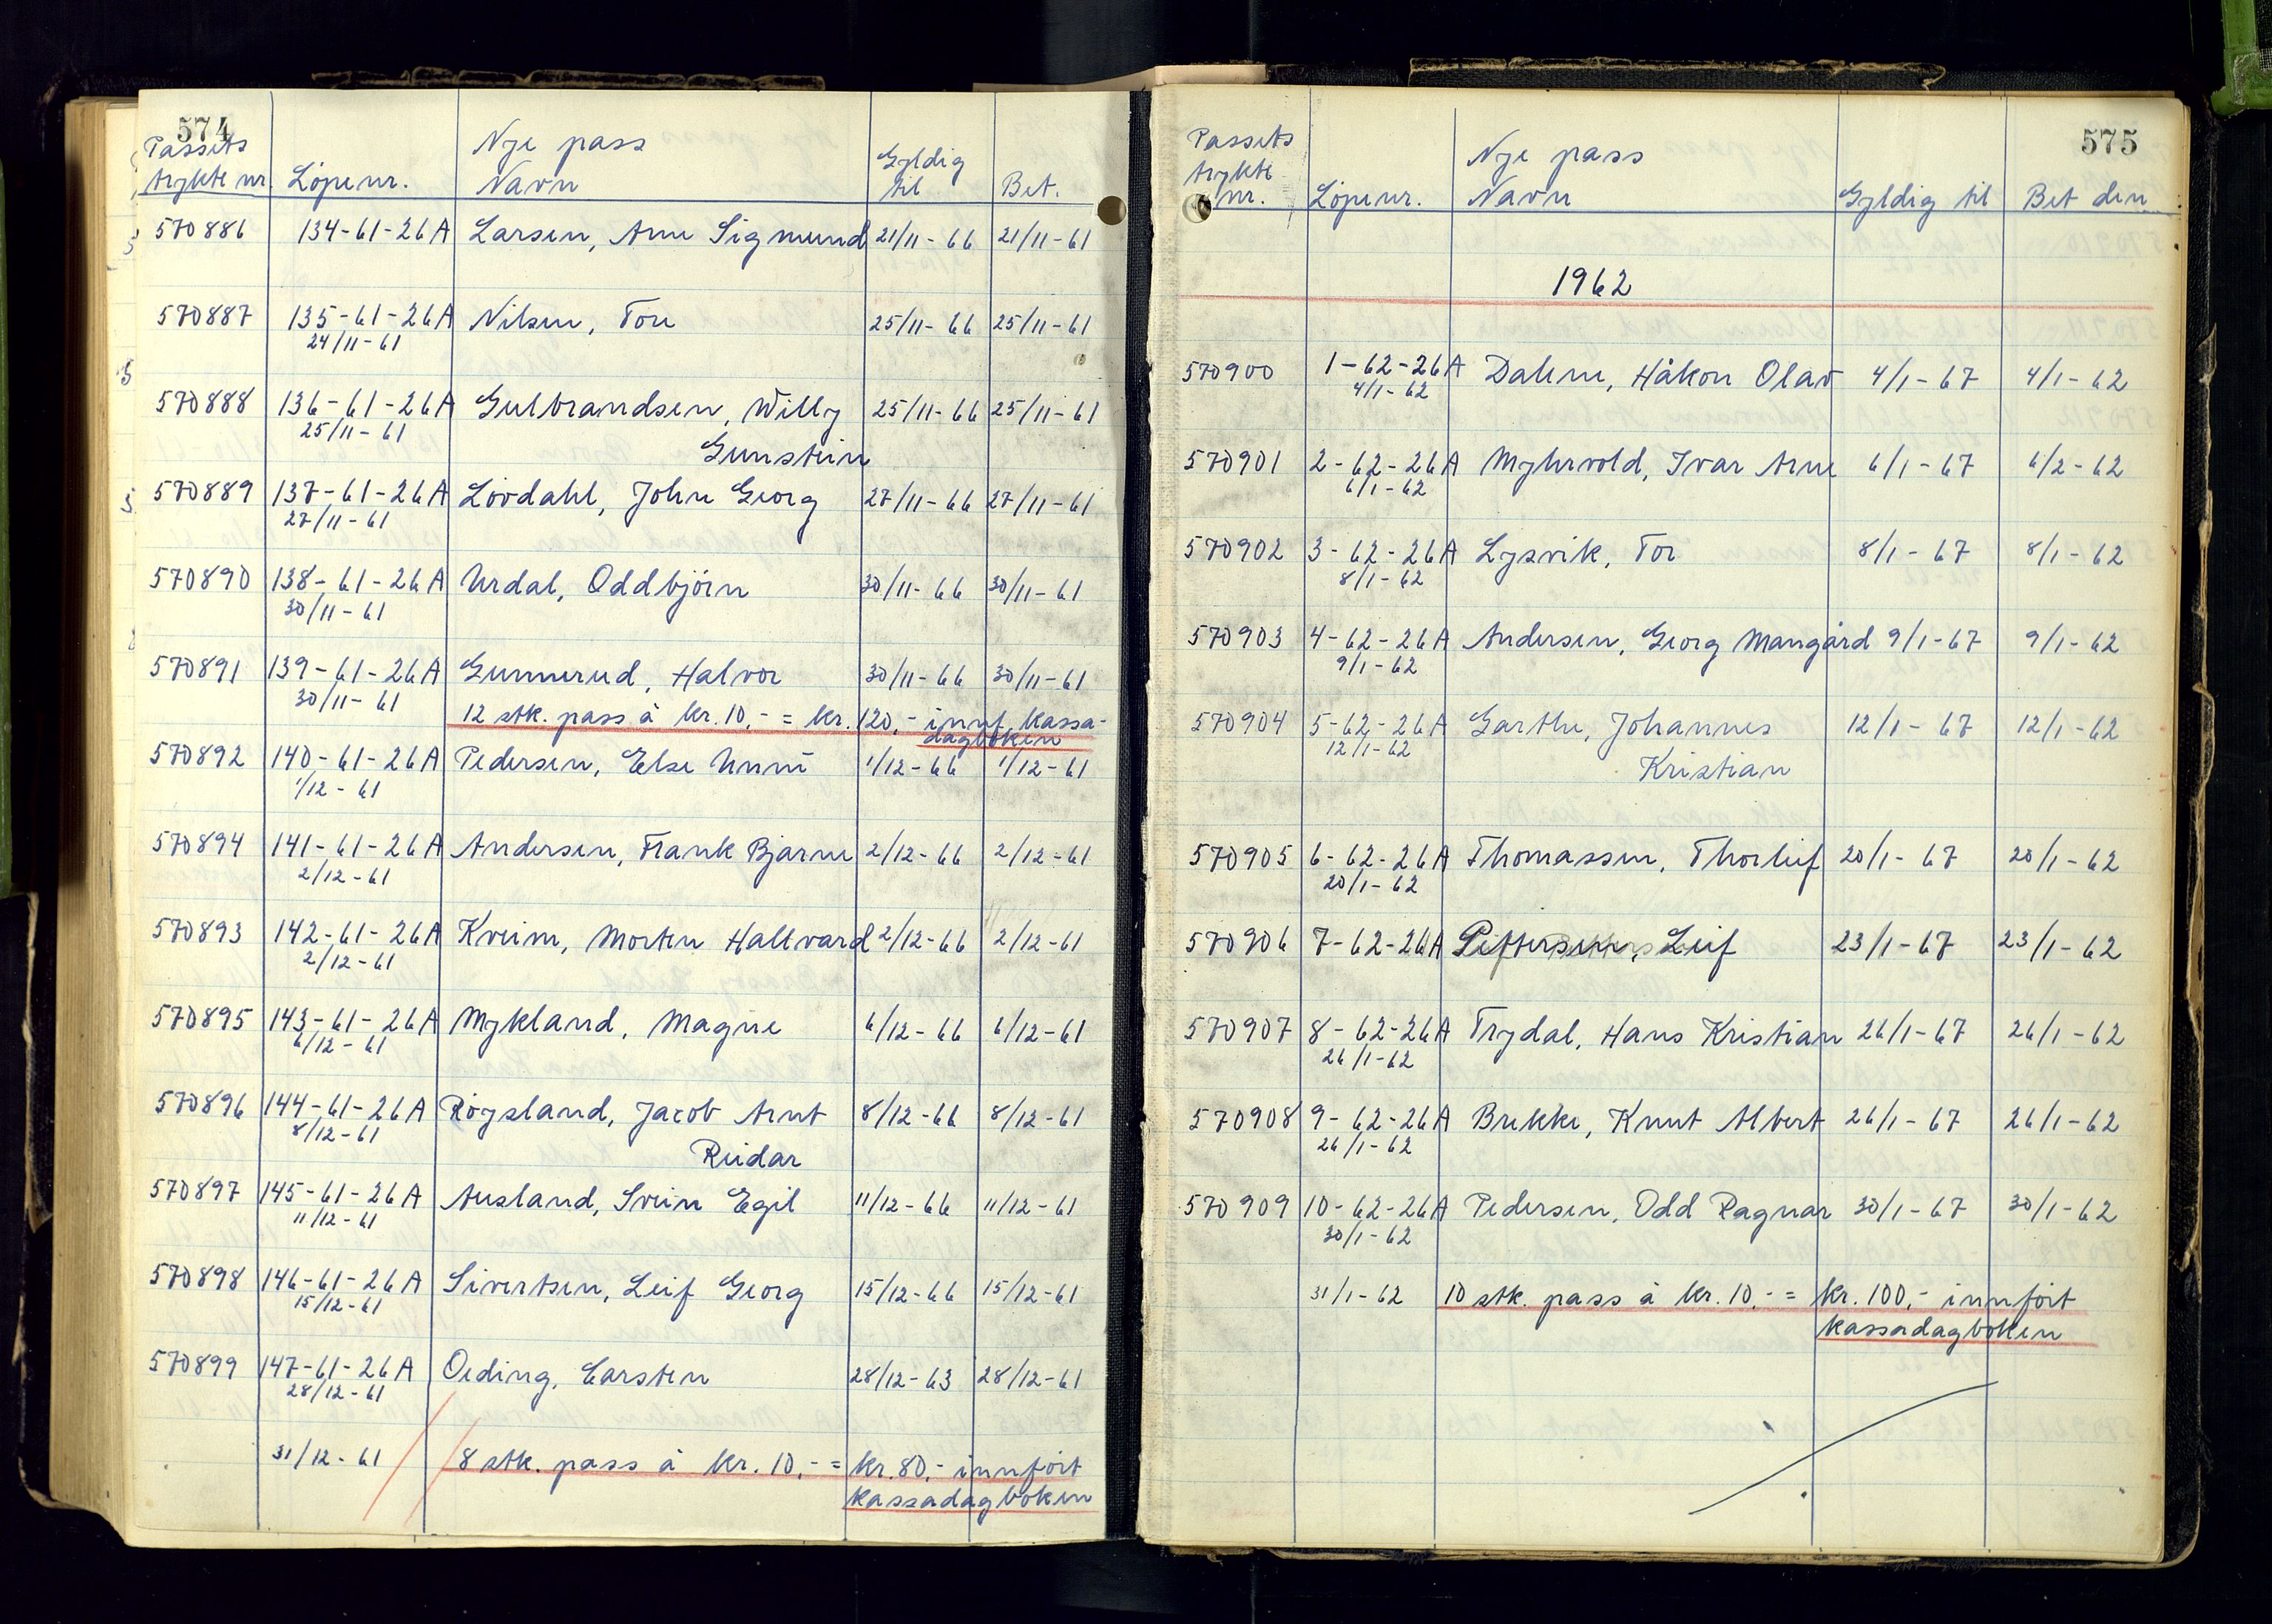 574
Passets
trykte nr. Löpenr. Nye pass
Navn Gyldig
til Bet.
570886 134-61-26A Larsen, Arne Sigmund 21/11-66 21/11-61
570887 135-61-26A Nilsen, Tore 25/11-66 25/11-61
24/11-61
570888 136-61-26A Gulbrandsen, Willy 25/11-66 25/11-61
25/11-61 Gunstein
570889 137-61-26A Lövdahl, John Georg 27/11-66 27/11-61
27/11-61
570890 138-61-26A Urdal, Oddbjörn 30/11-66 30/11-61
30/11-61
570891 139-61-26A Gunnerud, Halvor 30/11-66 30/11-61
30/11-61 12 stk. pass à kr. 10,- = kr. 120,- innf. kassa-
dagboken
570892 140-61-26A Pedersen, Else Unni 1/12-66 1/12-61
1/12-61
570894 141-61-26A Andersen, Frank Bjarne 2/12-66 2/12-61
2/12-61
570893 142-61-26A Kveim, Morten Hallvard 2/12-66 2/12-61
2/12-61
570895 143-61-26A Mykland, Magne 6/12-66 6/12-61
6/12-61
570896 144-61-26A Röysland, Jacob Arnt 8/12-66 8/12-61
8/12-61 Reidar
570897 145-61-26A Ausland, Svein Egil 11/12-66 11/12-61
11/12-61
570898 146-61-26A Sivertsen, Leif Georg 15/12-66 15/12-61
15/12-61
570899 147-61-26A Oeding, Carsten 28/12-63 28/12-61
28/12-61
31/12-61 8 stk. pass à kr. 10,- = kr. 80,- innfört
kassadagboken
575
Passets
trykte
nr. Löpenr. Nye pass
Navn Gyldig til Bet den
1962
570900 1-62-26A Dalene, Håkon Olav 4/1-67 4/1-62
4/1-62
570901 2-62-26A Myhrvold, Ivar Arne 6/1-67 6/2-62
6/1-62
570902 3-62-26A Lysvik, Tor 8/1-67 8/1-62
8/1-62
570903 4-62-26A Andersen, Georg Mangård 9/1-67 9/1-62
9/1-62
570904 5-62-26A Garthe, Johannes 12/1-67 12/1-62
12/1-62 Kristian
570905 6-62-26A Thomassen, Thorleif 20/1-67 20/1-62
20/1-62
570906 7-62-26A Leif 23/1-67 23/1-62
570907 8-62-26A Trydal, Hans Kristian 26/1-67 26/1-62
26/1-62
570908 9-62-26A Brekke, Knut Albert 26/1-67 26/1-62
26/1-62
570909 10-62-26A Pedersen, Odd Ragnar 30/1-67 30/1-62
30/1-62
31/1-62 10 stk. pass à kr. 10,- = kr. 100,- innfört
kassadagboken